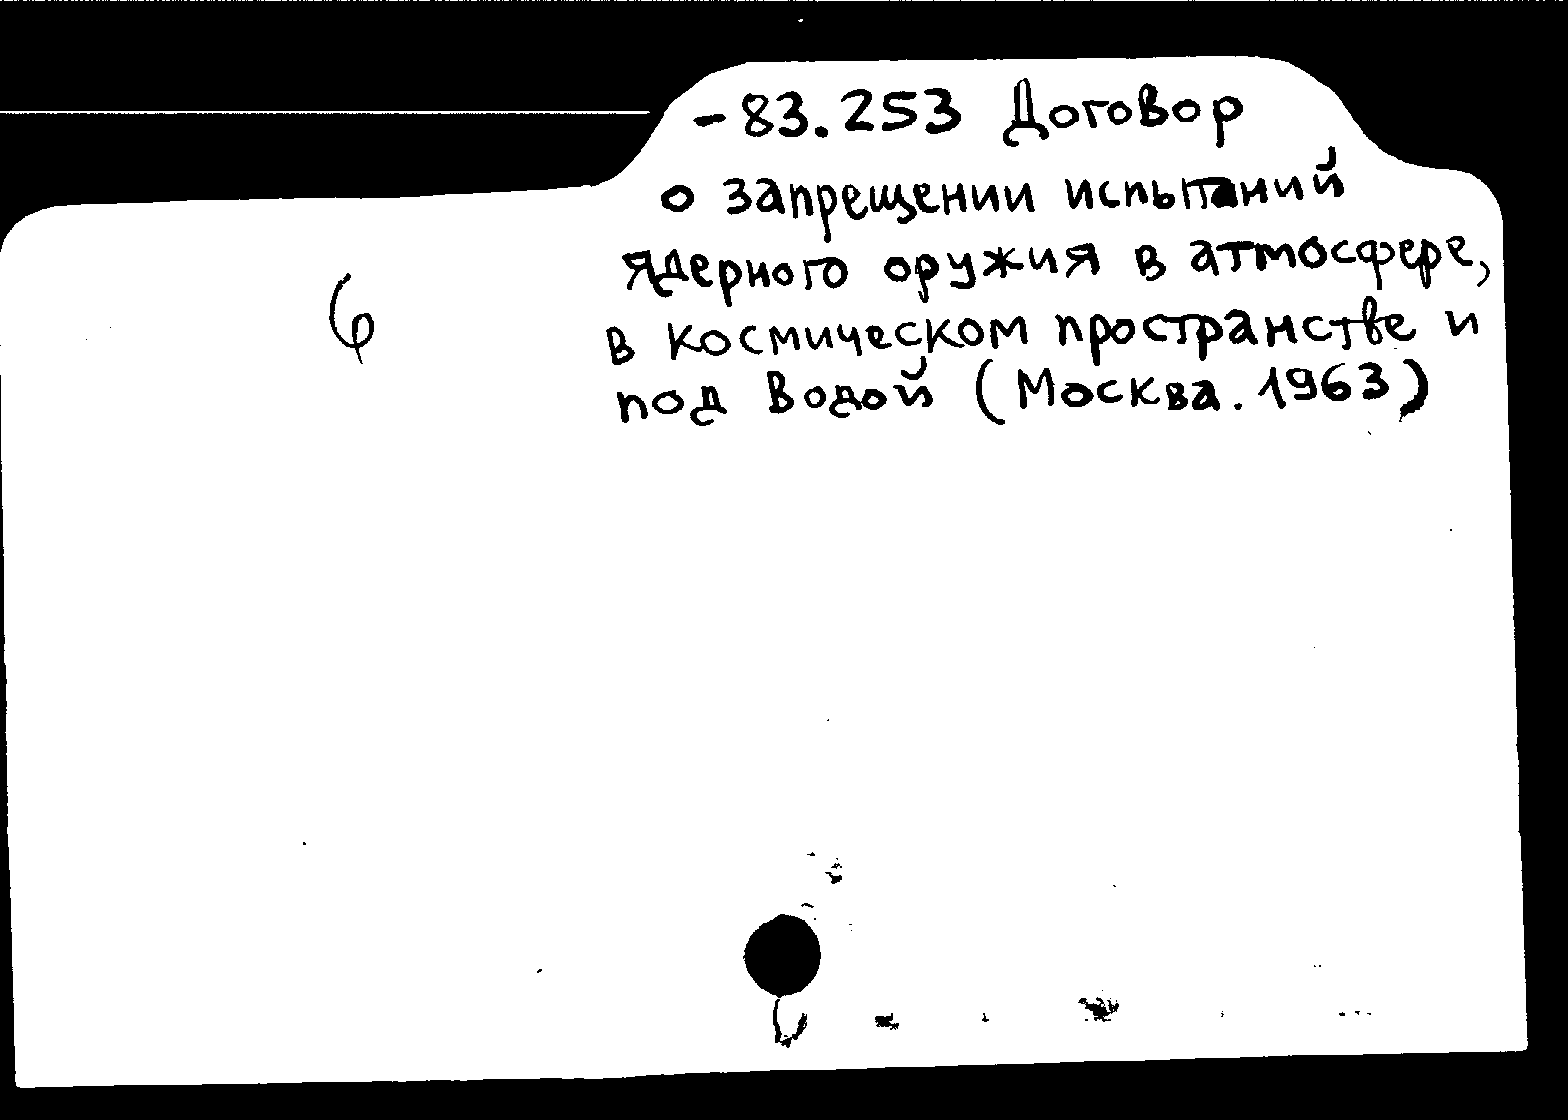 -83.253 Договор
о запрещении испытаний
ядерного оружия в атмосфере,
в космическом пространстве и
под водой (Москва. 1963)
6